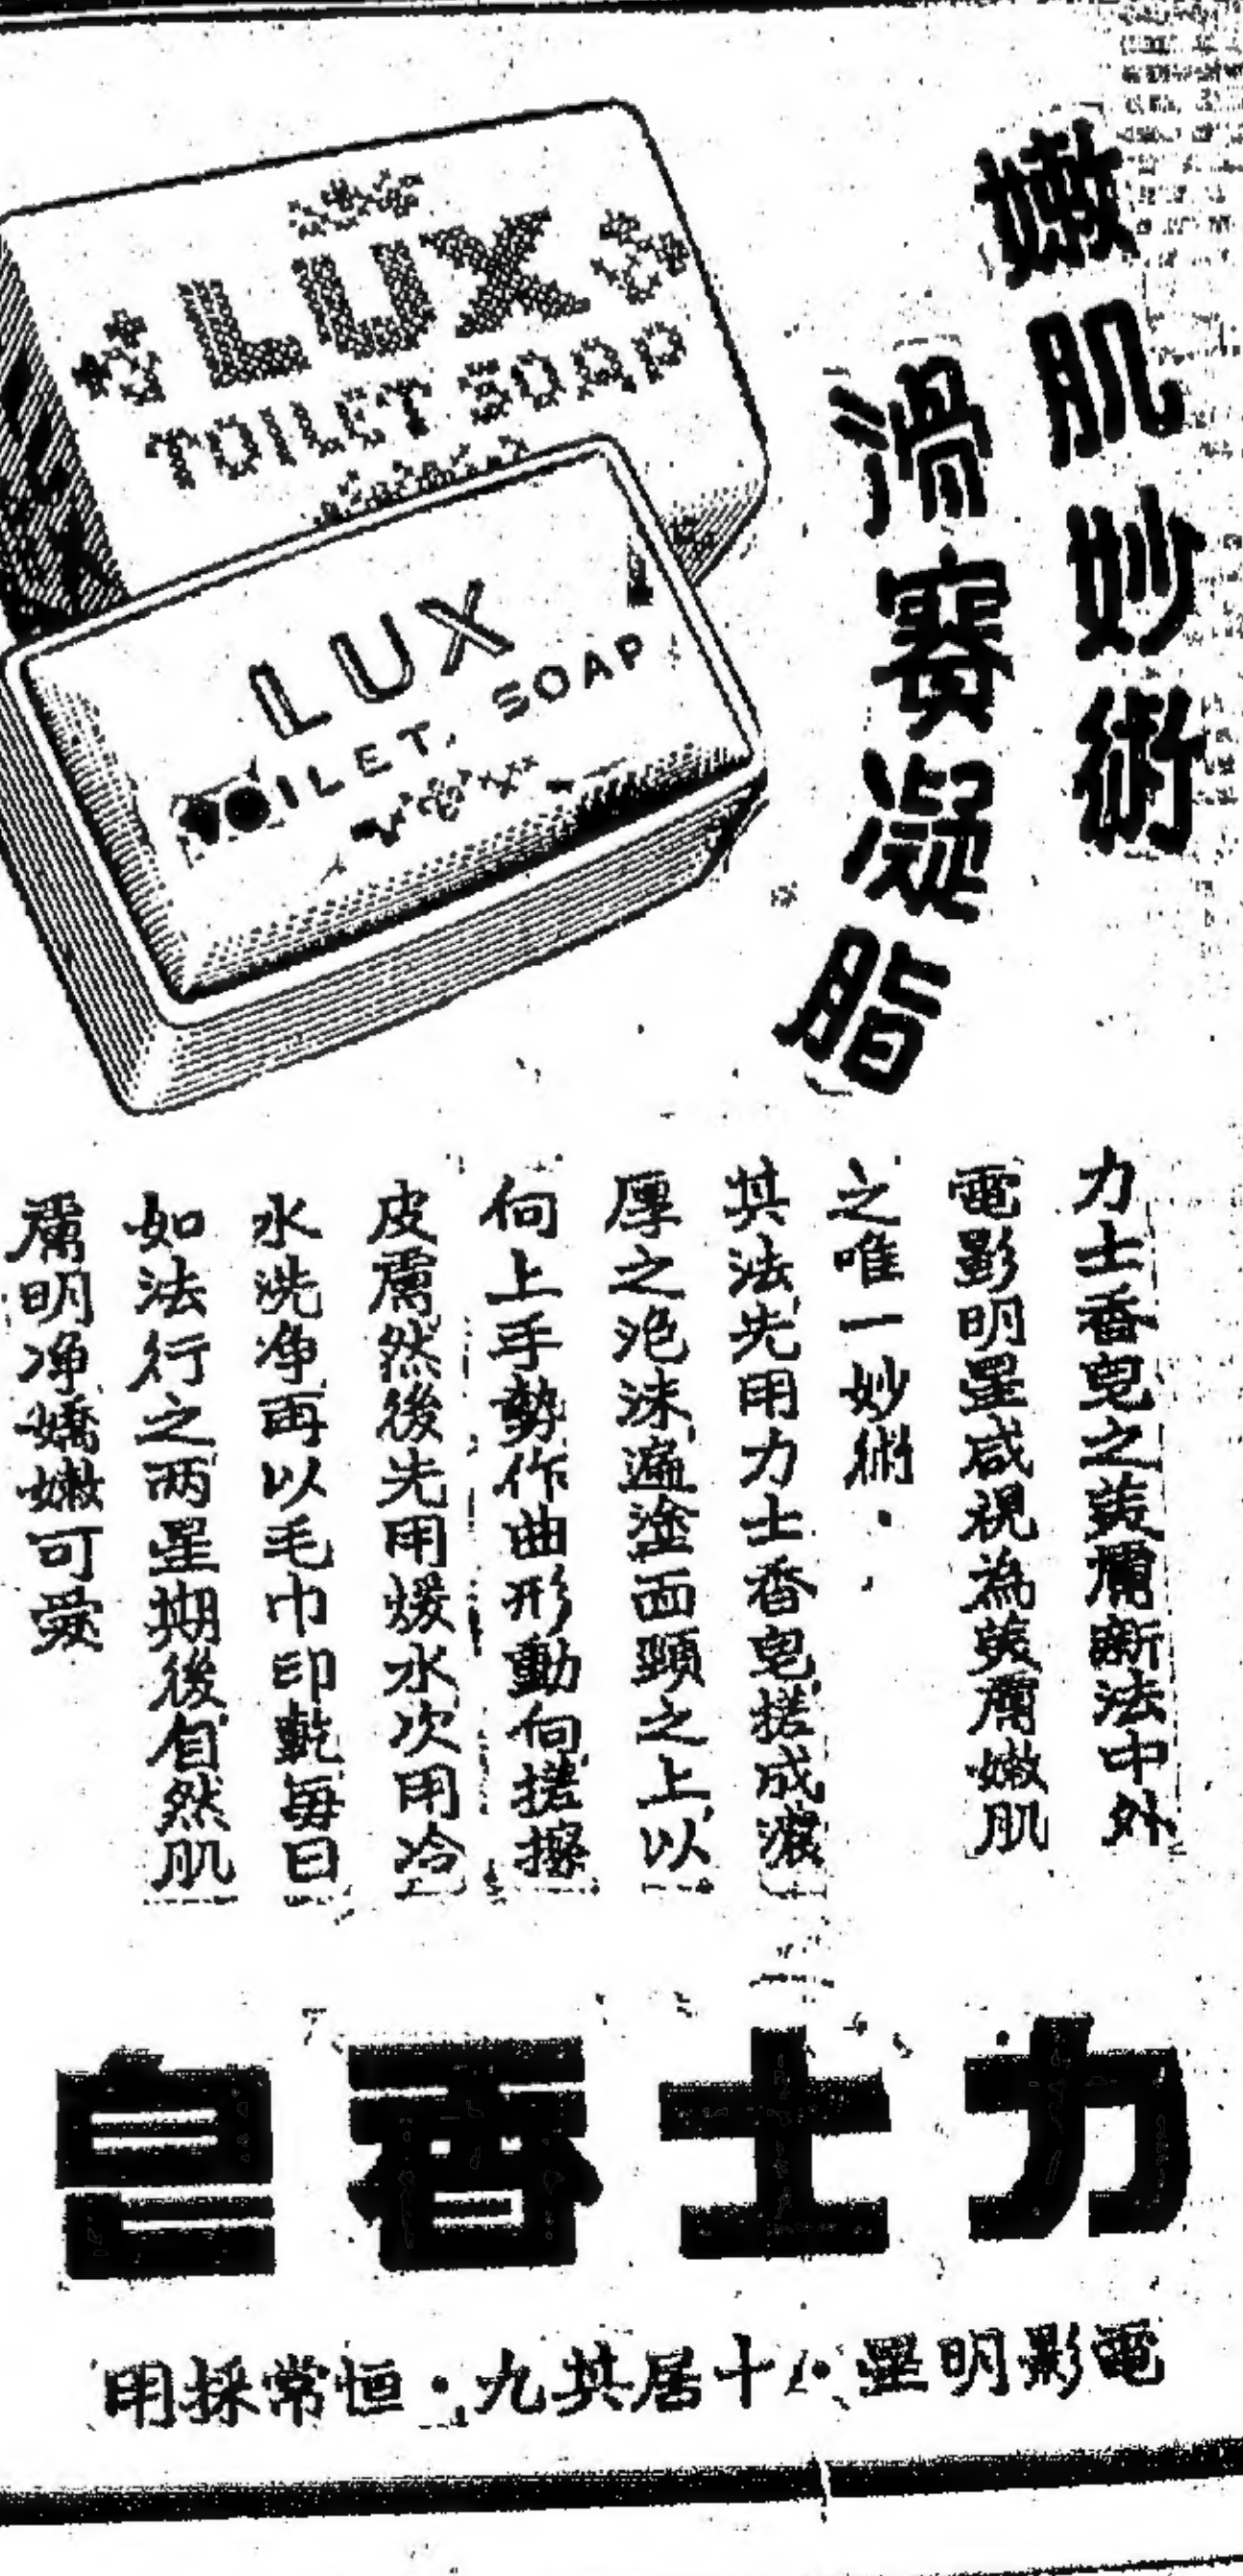 嫩肌妙術
滑賽凝脂
LUX
TOILET SOAP
LUX
TOILET SOAP
力士香皂之美膚新法中外
電影明星咸視為美膚嫩肌
之唯一妙術．
其法先用力士香皂搓成濃
厚之泡沫遍塗面頸之上以
向上手勢作曲形動向搓擦
皮膚然後先用煖水次用冷
水洗净再以毛巾印乾每日
如法行之两星期後自然肌
膚明净嬌嫩可愛
力士香皂
電影明星・十居其九・恒常採用